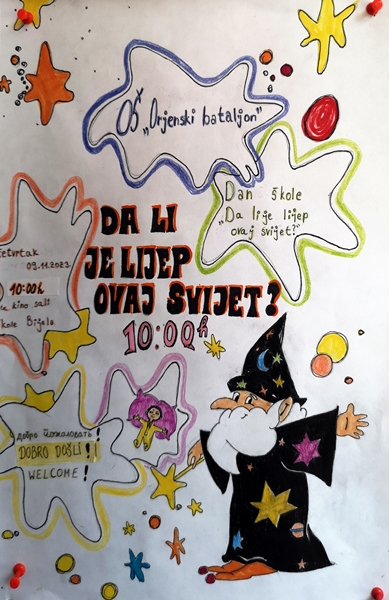 OŠ „Orjenski bataljon"
Dan škole
„Da li je lijep
ovaj svijet?"
DA LI
JE LIJEP
OVAJ SVIJET?
10:00h
09.11.2023.
10:00h
kino sali
Bijela
добро пожаловать!
DOBRO DOŠLI!
WELCOME!